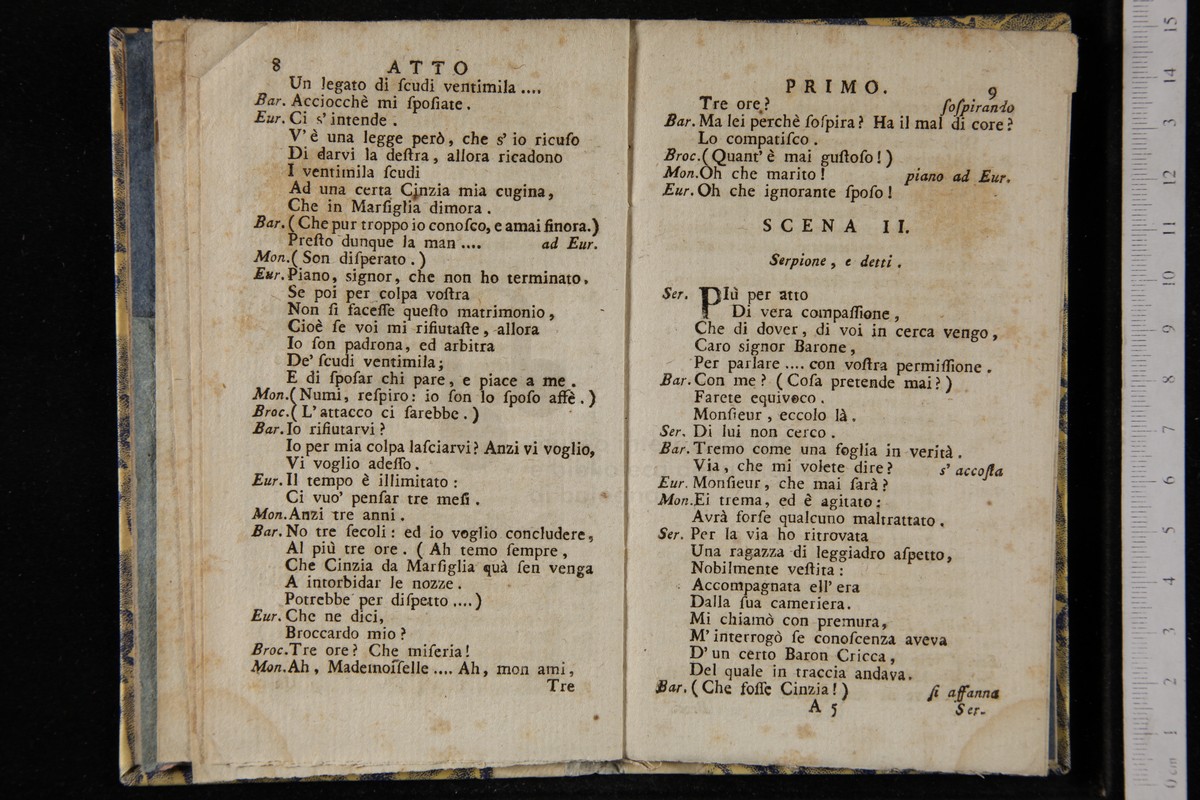 8 ATTO
Un legato di ſcudi ventimila ....
Bar. Acciocchè mi ſpoſiate .
Eur. Ci s' intende .
V' è una legge però, che s' io ricuſo
Di darvi la deſtra, allora ricadono
I ventimila ſcudi
Ad una certa Cinzia mia cugina,
Che in Marſiglia dimora .
Bar. ( Che pur troppo io conoſco, e amai finora.)
Preſto dunque la man .... ad Eur.
Mon.( Son diſperato . )
Eur.Piano, signor, che non ho terminato.
Se poi per colpa voſtra
Non ſi faceſſe queſto matrimonio ,
Cioè ſe voi mi rifiutaſte , allora
Io ſon padrona, ed arbitra
De' ſcudi ventimila;
E di ſpoſar chi pare, e piace a me .
Mon.(Numi, reſpiro: io ſon lo ſpoſo affè . )
Broc.( L' attacco ci ſarebbe . )
Bar. Io rifiutarvi ?
Io per mia colpa laſciarvi? Anzi vi voglio,
Vi voglio adeſſo .
Eur. Il tempo è illimitato :
Ci vuo' penſar tre meſi .
Mon.Anzi tre anni .
Bar. No tre ſecoli : ed io voglio concludere,
Al più tre ore . ( Ah temo ſempre ,
Che Cinzia da Marſiglia quà ſen venga
A intorbidar le nozze .
Potrebbe per diſpetto ....)
Eur. Che ne dici,
Broccardo mio ?
Broc.Tre ore? Che miſeria!
Mon.Ah , Mademoiſſelle .... Ah, mon ami,
Tre
PRIMO. 9
Tre ore ? ſoſpirando
Bar. Ma lei perchè ſoſpira? Ha il mal di core?
Lo compatiſco .
Broc.(Quant' è mai guſtoſo ! )
Mon.Oh che marito ! piano ad Eur.
Eur. Oh che ignorante ſpoſo !
SCENA II.
Serpione , e detti .
Ser. PIù per atto
Di vera compaſſione ,
Che di dover, di voi in cerca vengo ,
Caro signor Barone ,
Per parlare .... con voſtra permiſſione .
Bar. Con me ? ( Coſa pretende mai ? )
Farete equivoco .
Monſieur , eccolo là .
Ser. Di lui non cerco .
Bar. Tremo come una foglia in verità .
Via , che mi volete dire ? s' accoſta
Eur. Monſieur , che mai ſarà ?
Mon.Ei trema, ed è agitato :
Avrà forſe qualcuno maltrattato .
Ser. Per la via ho ritrovata
Una ragazza di leggiadro aſpetto,
Nobilmente veſtita :
Accompagnata ell' era
Dalla ſua cameriera.
Mi chiamò con premura,
M' interrogò ſe conoſcenza aveva
D' un certo Baron Cricca ,
Del quale in traccia andava.
Bar. ( Che foſſe Cinzia ! ) ſi affanna
A 5 Ser-